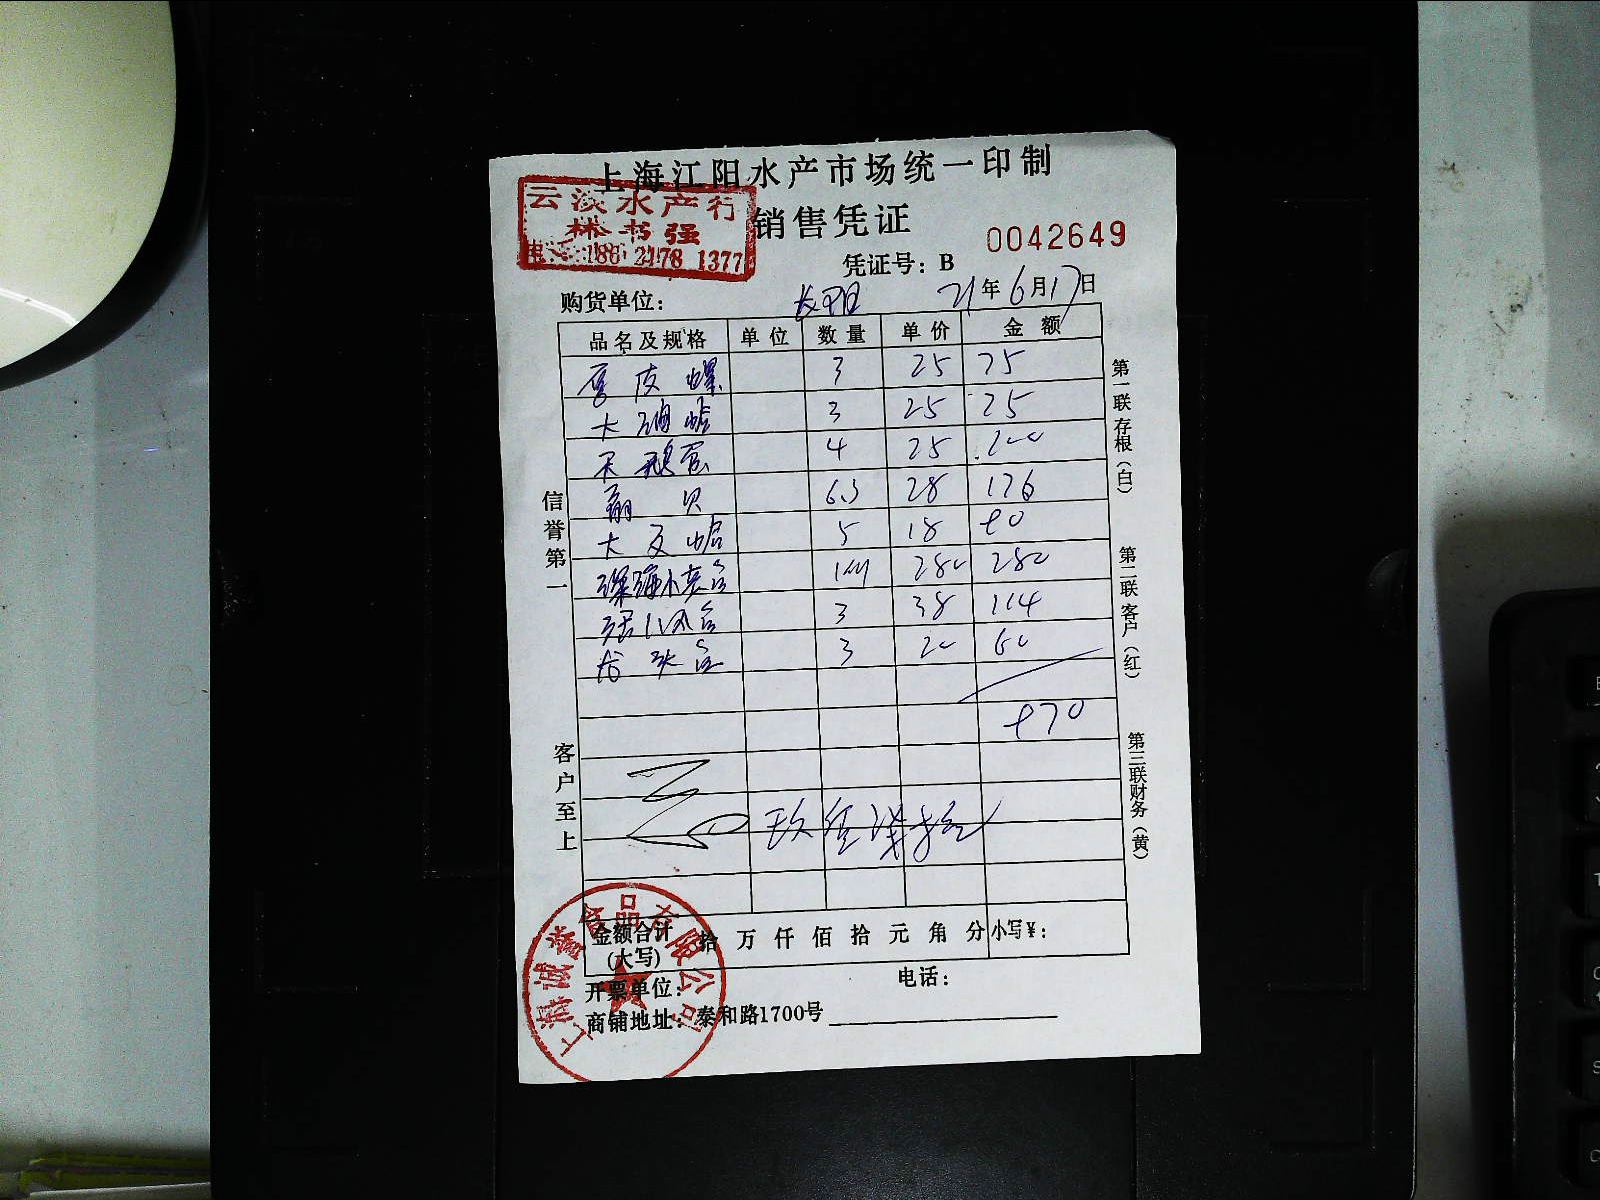 上海江阳水产市场统一印制
云淡水产行
林书强
销售凭证
0042649
凭证号：B
购货单位：
21年6月17日
品名及规格 单位 数量 单价 金额
皮螺 3 25 75
大 3 25 75
天鹅蛋 4 25 100
贝 6.3 28 176
大 5 18 90
280 280
3 38 114
3 20 60
970
玖佰柒拾
信誉第一
客户至上
第一联存根（白）
第二联客户（红）
第三联财务（黄）
金额合计(大写) 拾万仟佰拾元角分 小写¥：
开票单位： 电话：
商铺地址：泰和路1700号
上海诚誉食品有限公司